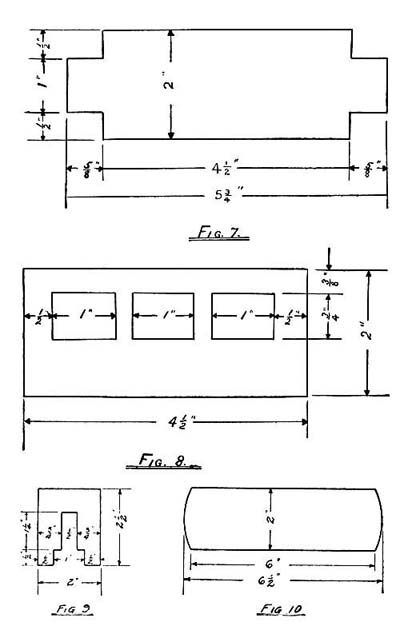 ½"
1"
½"
2"
⅝"
4½"
⅝"
5¾"
FIG. 7.
½
1"
1"
1"
½"
⅜"
¾"
2"
4½"
FIG. 8.
2½"
2"
FIG 9
2"
6"
6½"
FIG 10